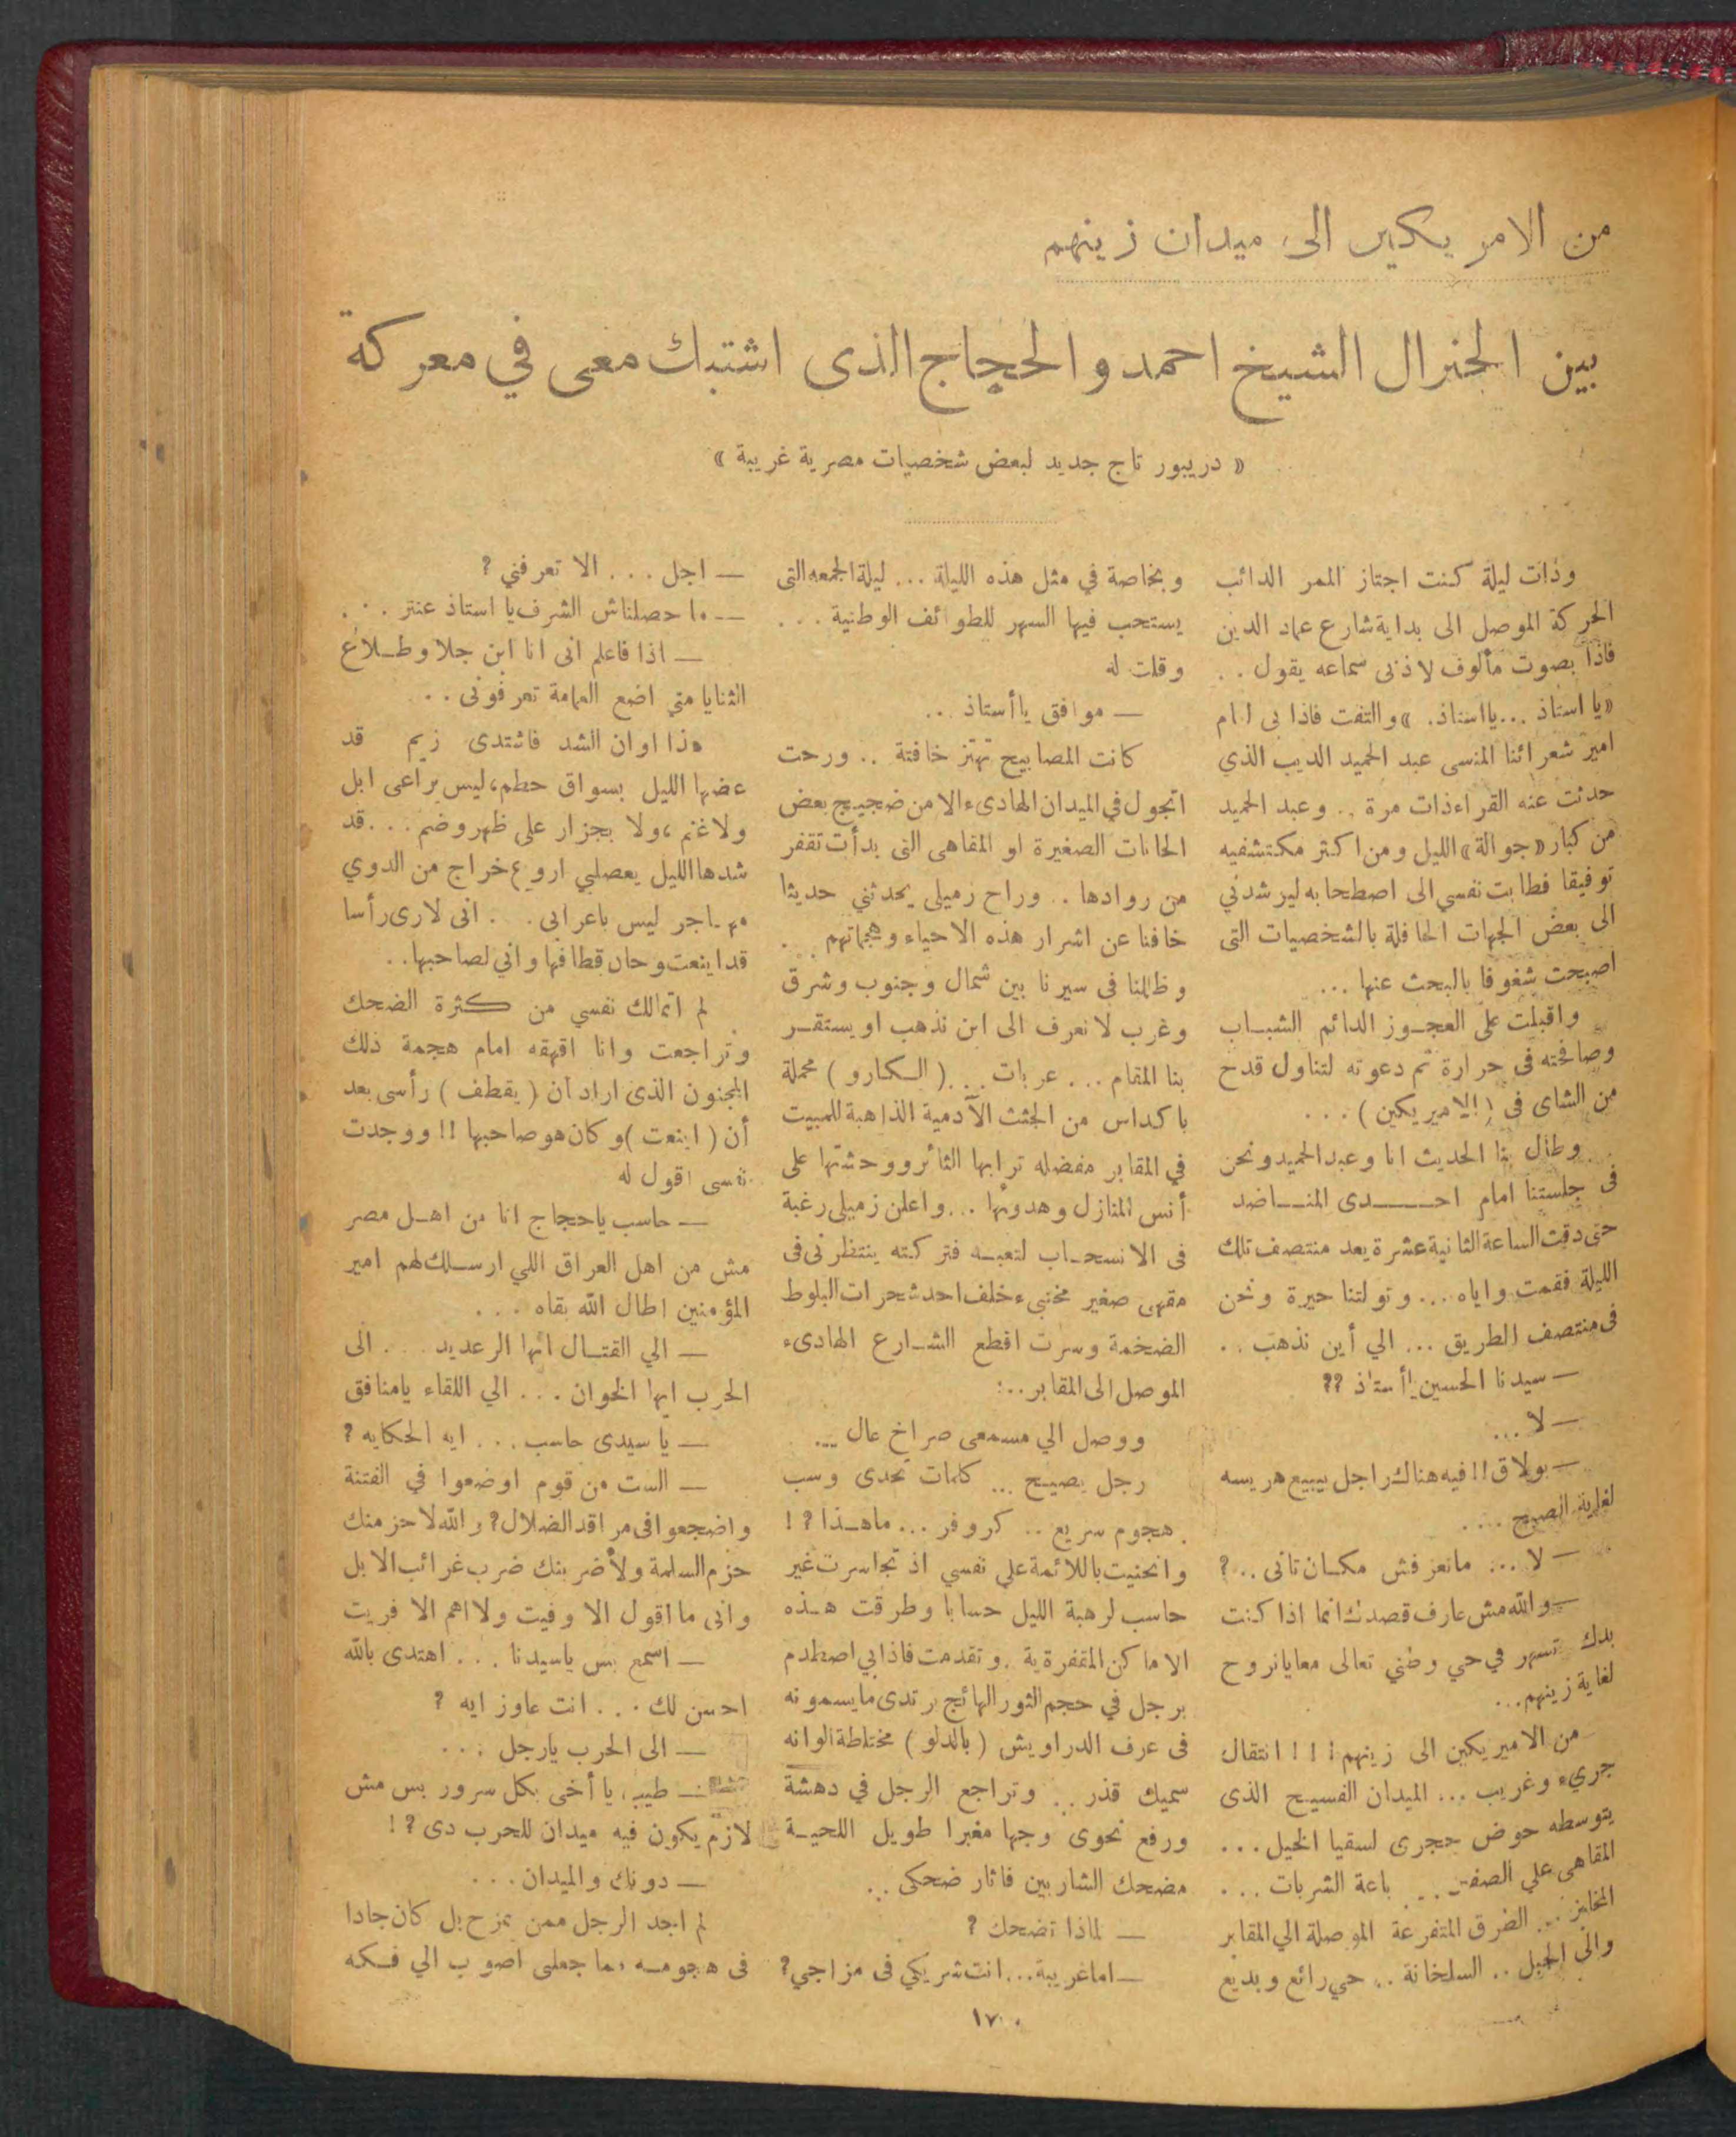 من الامريكين الى ميدان زينهم
بين الجنرال الشيخ احمد والحجاج الذى اشتبك معى في معركة
« دريبورتاج جديد لبعض شخصيات مصرية غريبة »
وذات ليلة كنت اجتاز الممر الدائب
الحركة الموصل الى بداية شارع عماد الدين
فاذا بصوت مألوف لاذنى سماعه يقول . .
« يا استاذ ... يااستاذ. » والتفت فاذا بى امام
امير شعرائنا المنسى عبد الحميد الديب الذي
حدثت عنه القراءذات مرة .. وعبد الحميد
من كبار « جوالة » الليل ومن اكثر مكتشفيه
توفيقا فطابت نفسي الى اصطحابه ليرشدني
الى بعض الجهات الحافلة بالشخصيات التى
اصبحت شغوفا بالبحث عنها ...
واقبلت على العجوز الدائم الشباب
وصافحته فى حرارة ثم دعوته لتناول قدح
من الشاى فى ( الاميريكين ) ...
وطال بنا الحديث انا وعبد الحميد ونحن
فى جلستنا امام احدى المناضد
حتى دقت الساعة الثانية عشرة يعد منتصف تلك
الليلة فقمت واياه ... وتولتنا حيرة ونحن
فى منتصف الطريق ... الي أين نذهب ..
— سيدنا الحسين يا أستاذ ??
— لا ...
— بولاق !! فيه هناك راجل يبيع هريسه
لغاية الصبح ....
— لا ... ماتعرفش مكان تانى .. ?
— والله مش عارف قصدك انما اذا كنت
بدك تسهر في حي وطني تعالى معايانروح
لغاية زينهم ...
من الاميريكين الى زينهم ! ! ! انتقال
جريء وغريب ... الميدان الفسيح الذى
يتوسطه حوض حجرى لسقيا الخيل ...
المقاهى علي الصف .. باعة الشربات ...
المخابز ... الطرق المتفرعة الموصلة الي المقابر
والى الجبل .. السلخانة .. حي رائع وبديع
وبخاصة في مثل هذه الليلة ... ليلة الجمعه التى
يستحب فيها السهر للطوائف الوطنية ...
وقلت له
— موافق ياأستاذ ..
كانت المصابيح تهتز خافتة .. ورحت
اتجول في الميدان الهادىء الا من ضجيج بعض
الحانات الصغيرة او المقاهى التى بدأت تقفر
من روادها .. وراح زميلى يحدثني حديثا
خافتا عن اشرار هذه الاحياء وهجماتهم ..
وظللنا فى سيرنا بين شمال وجنوب وشرق
وغرب لا نعرف الى اين نذهب او يستقر
بنا المقام ... عربات ... ( الكارو ) محملة
باكداس من الجثث الآدمية الذاهبة للمبيت
في المقابر مفضله ترابها الثائر ووحشتها على
أنس المنازل وهدوئها ... واعلن زميلى رغبة
فى الانسحاب لتعبه فتركته ينتظرنى فى
مقهى صغير مختبىء خلف احد شجرات البلوط
الضخمة وسرت اقطع الشارع الهادىء
الموصل الى المقابر ..:
ووصل الي مسمعى صراخ عال ...
رجل يصيح ... كلمات تحدى وسب
هجوم سريع .. كر وفر ... ماهذا ? !
وانحنيت باللائمة علي نفسي اذ تجاسرت غير
حاسب لرهبة الليل حسابا وطرقت هذه
الاماكن المقفرة . وتقدمت فاذابي اصطدم
برجل في حجم الثور الهائج يرتدى مايسمونه
فى عرف الدراويش ( بالدلو ) مختلطة الوانه
سميك قذر .. وتراجع الرجل في دهشة
ورفع نحوى وجها مغبرا طويل اللحية
مضحك الشاربين فاثار ضحكى ..
— لماذا تضحك ?
— اما غريبة ... انت شريكي فى مزاجي ?
— اجل ... الا تعرفني ?
— ما حصلناش الشرف يا استاذ عنتر ...
— اذا فاعلم انى انا ابن جلا وطلاع
الثنايا متي اضع العمامة تعرفونى ...
هذا اوان الشد فاشتدى زيم قد
عضها الليل بسواق حطم ، ليس براعى ابل
ولاغنم ، ولا بجزار على ظهر وضم ... قد
شدها الليل يعصلبي اروع خراج من الدوي
مهاجر ليس باعرابى ... انى لارى رأسا
قد اينعت وحان قطافها وانى لصاحبها ..
لم اتمالك نفسي من كثرة الضحك
وتراجعت وانا اقهقه امام هجمة ذلك
المجنون الذى ارادان ( يقطف ) رأسى بعد
أن ( اينعت ) وكان هو صاحبها !! ووجدت
نفسى اقول له
— حاسب ياحجاج انا من اهل مصر
مش من اهل العراق اللي ارسلك لهم امير
المؤمنين اطال الله بقاه ...
— الي القتال ايها الرعديد ... الى
الحرب ايها الخوان ... الي اللقاء يامنافق
— يا سيدى حاسب ... ايه الحكايه ?
— الست من قوم اوضعوا في الفتنة
واضجعوا فى مراقد الضلال ? والله لاحزمنك
حزم السلمة ولأضربنك ضرب غرائب الابل
وانى ما اقول الا وفيت ولا اهم الا فريت
— اسمع بس ياسيدنا ... اهتدى بالله
احسن لك ... انت عاوز ايه ?
— الى الحرب يارجل ...
— طيب ، يا أخى بكل سرور بس مش
لازم يكون فيه ميدان للحرب دى ? !
— دونك والميدان ...
لم اجد الرجل ممن تمزح بل كان جادا
فى هجومه مما جعلى اصوب الي فكه
١٧